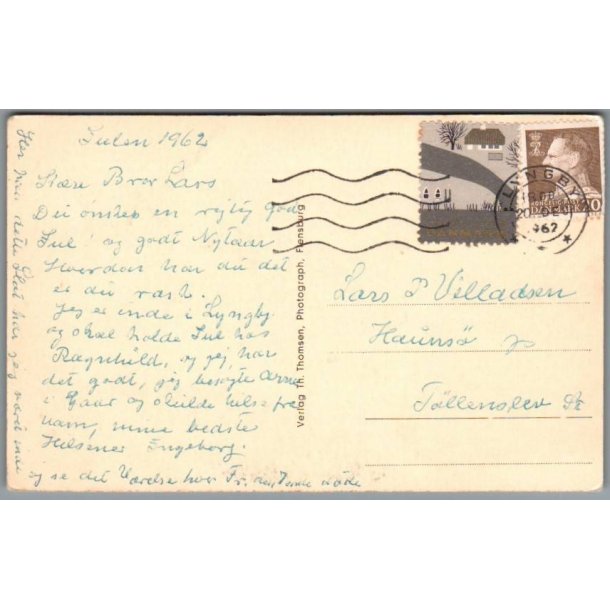 Julen 1962
Kære Bror Lars
Du ønskes en rigtig god
Jul og godt Nytaar
Hvordan har du det
er du rask.
Jeg er inde i Lyngby
og skal holde Jul hos
Ragnhild, og jeg har
det godt, jeg besøgte Arne
i Gaar og skulde hilse fra
ham, mine bedste
Hilsener Engeborg.
Her inde dette Slot har jeg været inde
og se det Værelse hvor Fr. døde
Verlag Th. Thomsen, Photograph, Flensburg
LYNGBY
1962
Lars P Villadsen
Havnsø
Føllenslev